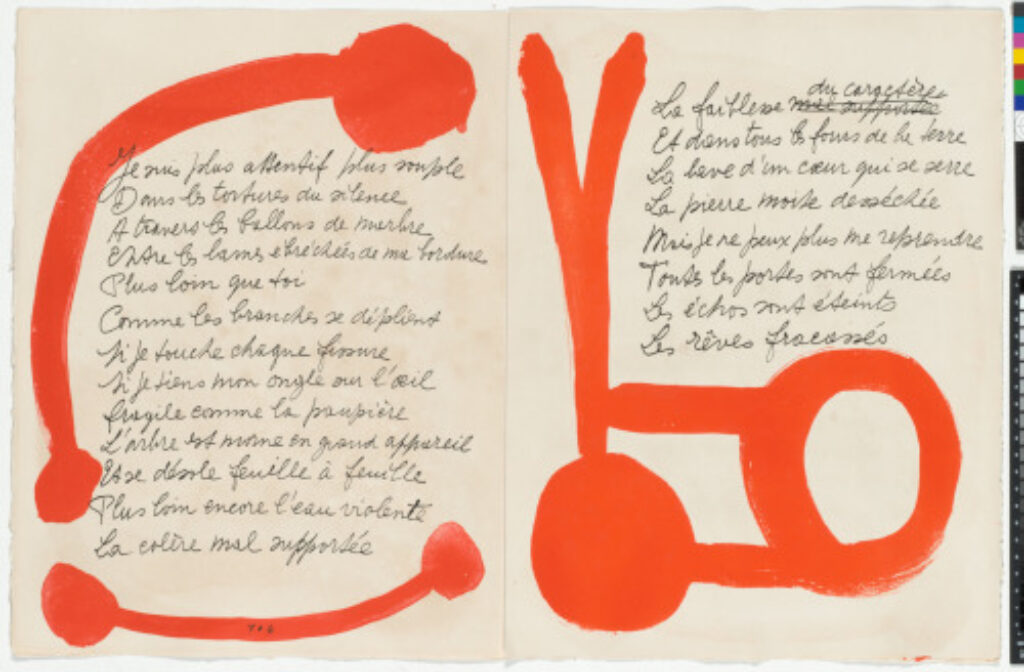 Je suis plus attentif plus souple
Dans les tortures du silence
A travers les ballons de marbre
Entre les lames ébréchées de ma bordure
Plus loin que toi
Comme les branches se déplient
Si je touche chaque fissure
Si je tiens mon ongle sur l'œil
fragile comme la paupière
L'arbre est morne en grand appareil
Et se désole feuille à feuille
Plus loin encore l'eau violente
La colère mal supportée
du caractère
La faiblesse mal supportée
Et dans tous les fours de la terre
La lave d'un cœur qui se serre
La pierre moite desséchée
Mais je ne peux plus me reprendre
Toutes les portes sont fermées
Les échos sont éteints
Les rêves fracassés